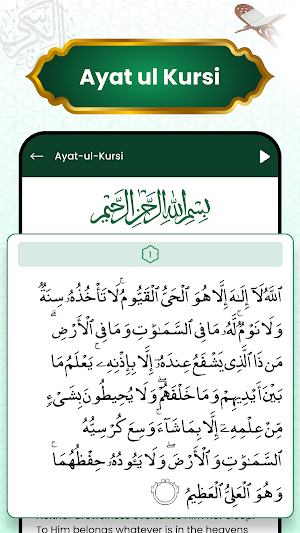 Ayat ul Kursi
Ayat-ul-Kursi
بِسْمِ اللهِ الرَّحْمٰنِ الرَّحِيْمِ
1
اَللّٰهُ لَآ اِلٰهَ اِلَّا هُوَ الْحَيُّ الْقَيُّوْمُ ۚ لَا تَأْخُذُهٗ سِنَةٌ
وَّلَا نَوْمٌ ؕ لَهٗ مَا فِي السَّمٰوٰتِ وَمَا فِي الْاَرْضِ ؕ
مَنْ ذَا الَّذِيْ يَشْفَعُ عِنْدَهٗۤ اِلَّا بِاِذْنِهٖ ؕ يَعْلَمُ مَا
بَيْنَ اَيْدِيْهِمْ وَمَا خَلْفَهُمْ ۚ وَلَا يُحِيْطُوْنَ بِشَيْءٍ
مِّنْ عِلْمِهٖۤ اِلَّا بِمَا شَآءَ ۚ وَسِعَ كُرْسِيُّهُ
السَّمٰوٰتِ وَالْاَرْضَ ۚ وَلَا يَـُٔوْدُهٗ حِفْظُهُمَا ۚ
وَهُوَ الْعَلِيُّ الْعَظِيْمُ
To Him belongs whatever is in the heavens